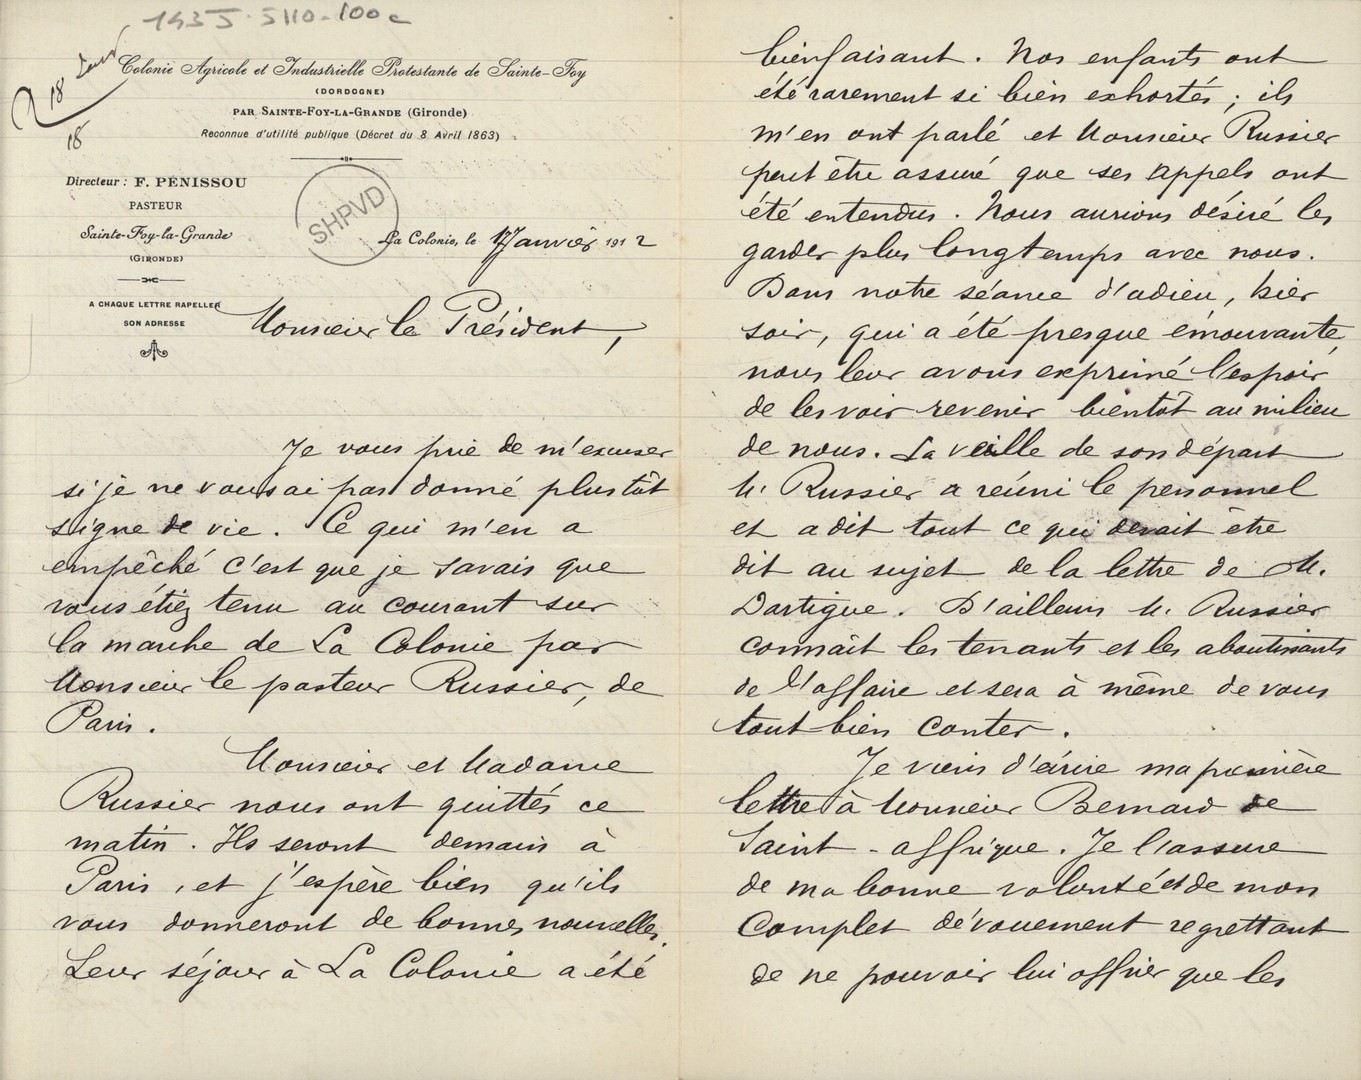 143 J 5110-100c
18
18
Colonie Agricole et Industrielle Protestante de Sainte-Foy
(DORDOGNE)
PAR SAINTE-FOY-LA-GRANDE (Gironde)
Reconnue d'utilité publique (Décret du 8 Avril 1863)
Directeur : F. PÉNISSOU
PASTEUR
Sainte-Foy-la-Grande
(GIRONDE)
A CHAQUE LETTRE RAPELLER
SON ADRESSE
SHPVD
La Colonie, le 17 Janvier 1912
Monsieur le Président,
Je vous prie de m'excuser
si je ne vous ai pas donné plus tôt
signe de vie. Ce qui m'en a
empêché c'est que je savais que
vous étiez tenu au courant sur
la marche de La Colonie par
Monsieur le pasteur Russier, de
Paris.
Monsieur et Madame
Russier nous ont quittés ce
matin. Ils seront demain à
Paris, et j'espère bien qu'ils
vous donneront de bonnes nouvelles.
Leur séjour à La Colonie a été
bienfaisant. Nos enfants ont
été rarement si bien exhortés ; ils
m'en ont parlé et Monsieur Russier
peut être assuré que ses appels ont
été entendus. Nous aurions désiré les
garder plus longtemps avec nous.
Dans notre séance d'adieu, hier
soir, qui a été presque émouvante,
nous leur avons exprimé l'espoir
de les voir revenir bientôt au milieu
de nous. La veille de son départ
M. Russier a réuni le personnel
et a dit tout ce qui devait être
dit au sujet de la lettre de M.
Dartigue. D'ailleurs M. Russier
connaît les tenants et les aboutissants
de l'affaire et sera à même de vous
tout bien conter.
Je viens d'écrire ma première
lettre à Monsieur Bernard de
Saint-affrique. Je l'assure
de ma bonne volonté et de mon
complet dévouement regrettant
de ne pouvoir lui offrir que les